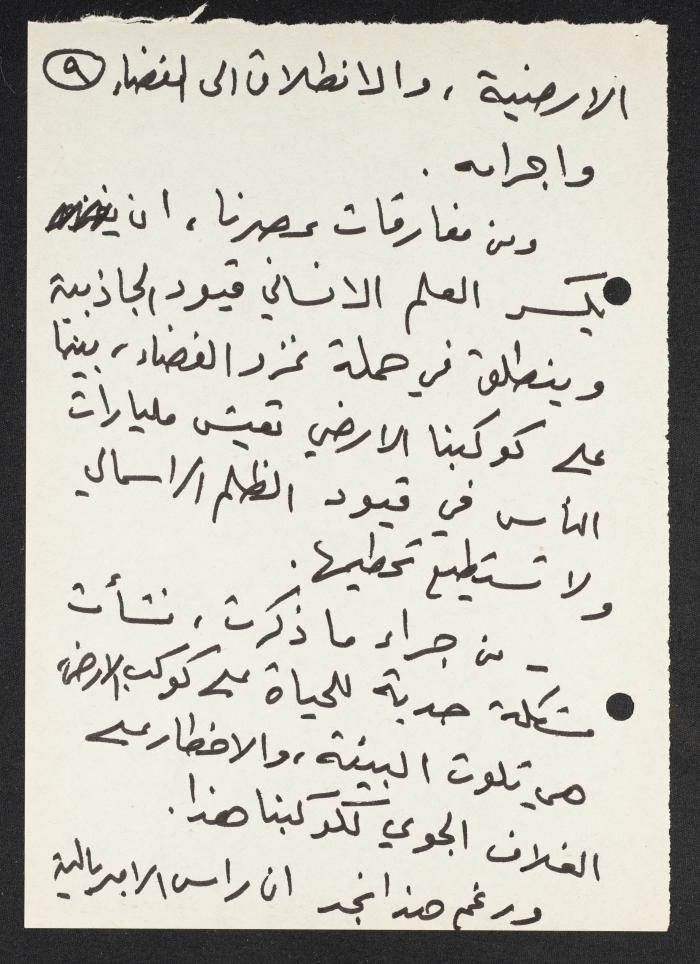 الارضية ، والانطلاق الى الفضاء ٩
واجرامه .
ومن مفارقات عصرنا ، ان
يكسر العلم الانساني قيود الجاذبية
وينطلق في حملة غزو الفضاء ، بينما
على كوكبنا الارضي تعيش مليارات
الناس في قيود الظلم الراسمالي
ولا تستطيع تحطيمها .
- من جراء ما ذكرت ، نشأت
مشكلة جدية للحياة على كوكب الارض،
هي تلوث البيئة ، والاخطار على
الغلاف الجوي لكوكبنا هذا .
ورغم هذا نجد ان راس الامبريالية